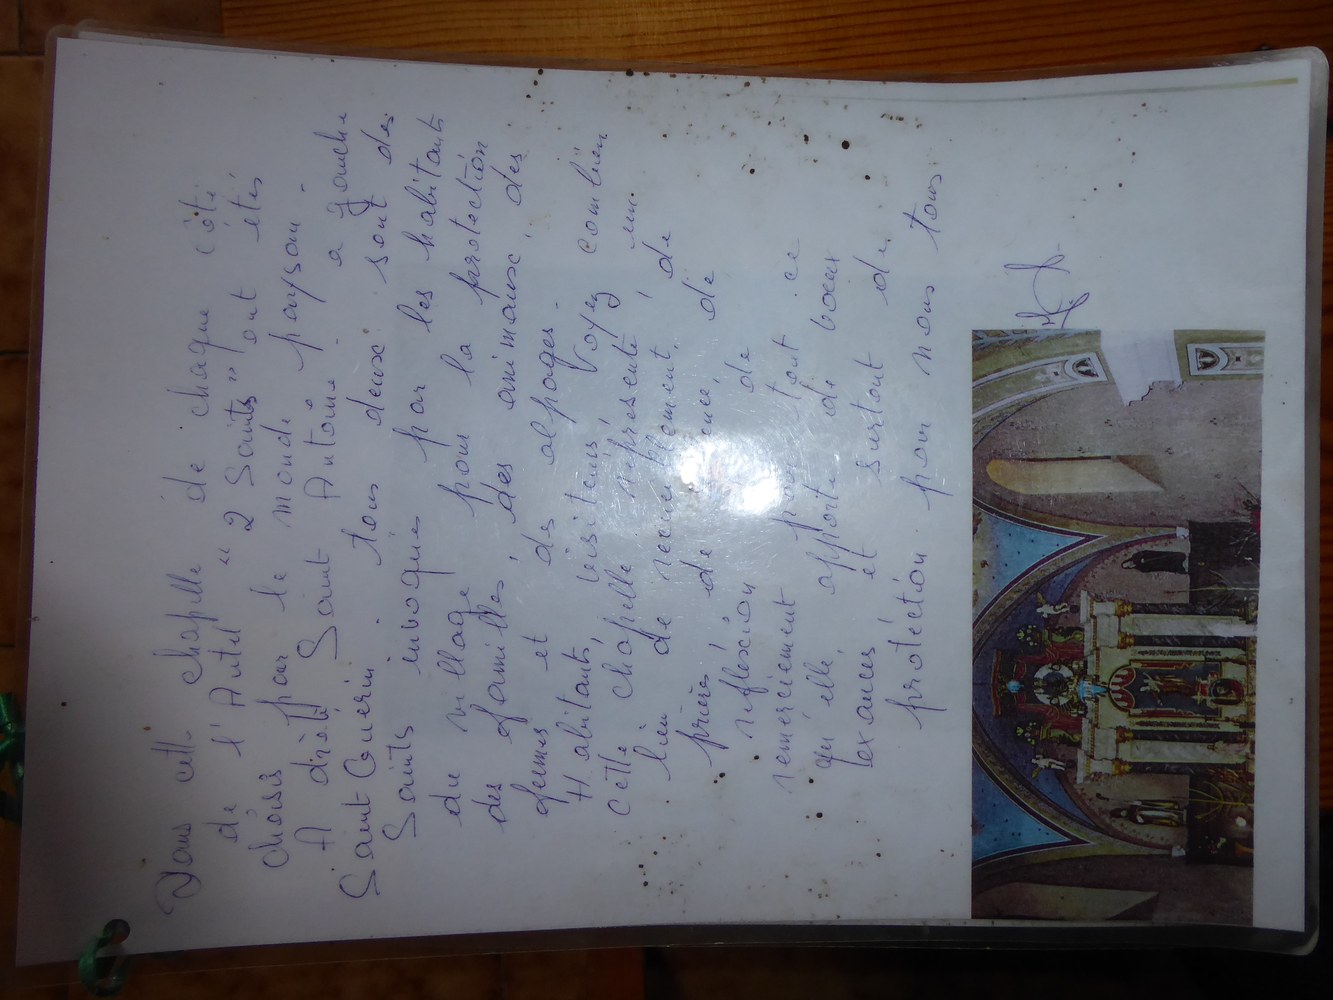 Dans cette chapelle de chaque côté
de l'Autel " 2 Saints" ont étés
choisis par le monde paysan.
A diète Saint Antoine. a gauche
Saint Guérin. tous deux sont des
Saints invoqués par les habitants
du village pour la protection
des familles, des animaux, des
fermes et des alpages.
Habitants, visiteurs, Voyez combien
cette chapelle représente un
lieu de recueillement, de
prières, de silence, de
réflexion de
remerciement pour tout ce
qu'elle apporte de voeux
exaucés et surtout de
protéction pour nous tous